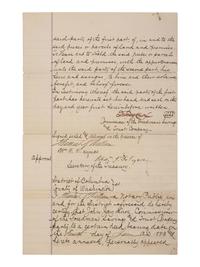 said party of the first part of, in and to the
said piece or parcel of land and premises
to Have and to Hold the said piece or parcel
of land, and premises, with the appurtenances
unto the said party of the second part, his
heirs and assigns, to him and their sole use
benefit, and behoof forever.
In testimony whereof the said party of the first
part has hereunto set his hand and seal on the
day and year first hereinbefore written
Commissioner of the Freedman's Savings
& Trust Company.
Signed, sealed & delivered in the presence of
Approved
Secretary of the Treasury.
District of Columbia
County of Washington
a Notary Public in
and for the District aforesaid, do hereby
certify that John Jay Knox Commissioner
of the Freedman's Savings & Trust Company
party to a certain deed, bearing date on
the day of
hereto annexed, personally appeared